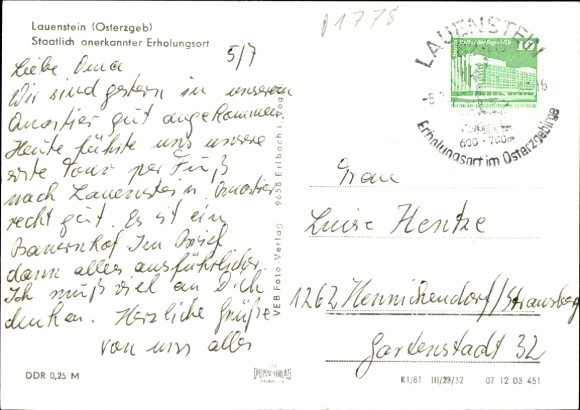 Lauenstein (Osterzgeb)
Staatlich anerkannter Erholungsort
01778
5/7
Liebe Oma
Wir sind gestern in unserem
Quartier gut angekommen
Heute führte uns unsere
erste Tour per Fuß
nach Lauenstein. Quartier
recht gut. Es ist ein
Bauernhof Im Brief
dann alles ausführlicher.
Ich muß viel an Dich
denken. Herzliche Grüße
von uns allen
DDR 0,25 M
VEB Foto-Verlag 9658 Erlbach i. Vogtl.
FOTO VERLAG
LAUENSTEIN
10
600-700m
Erholungsort im Osterzgebirge
Frau
Luise Hentze
1262 Hennickendorf/Strausberg
Gartenstadt 32
K1/81 III/29/32 07 12 03 451